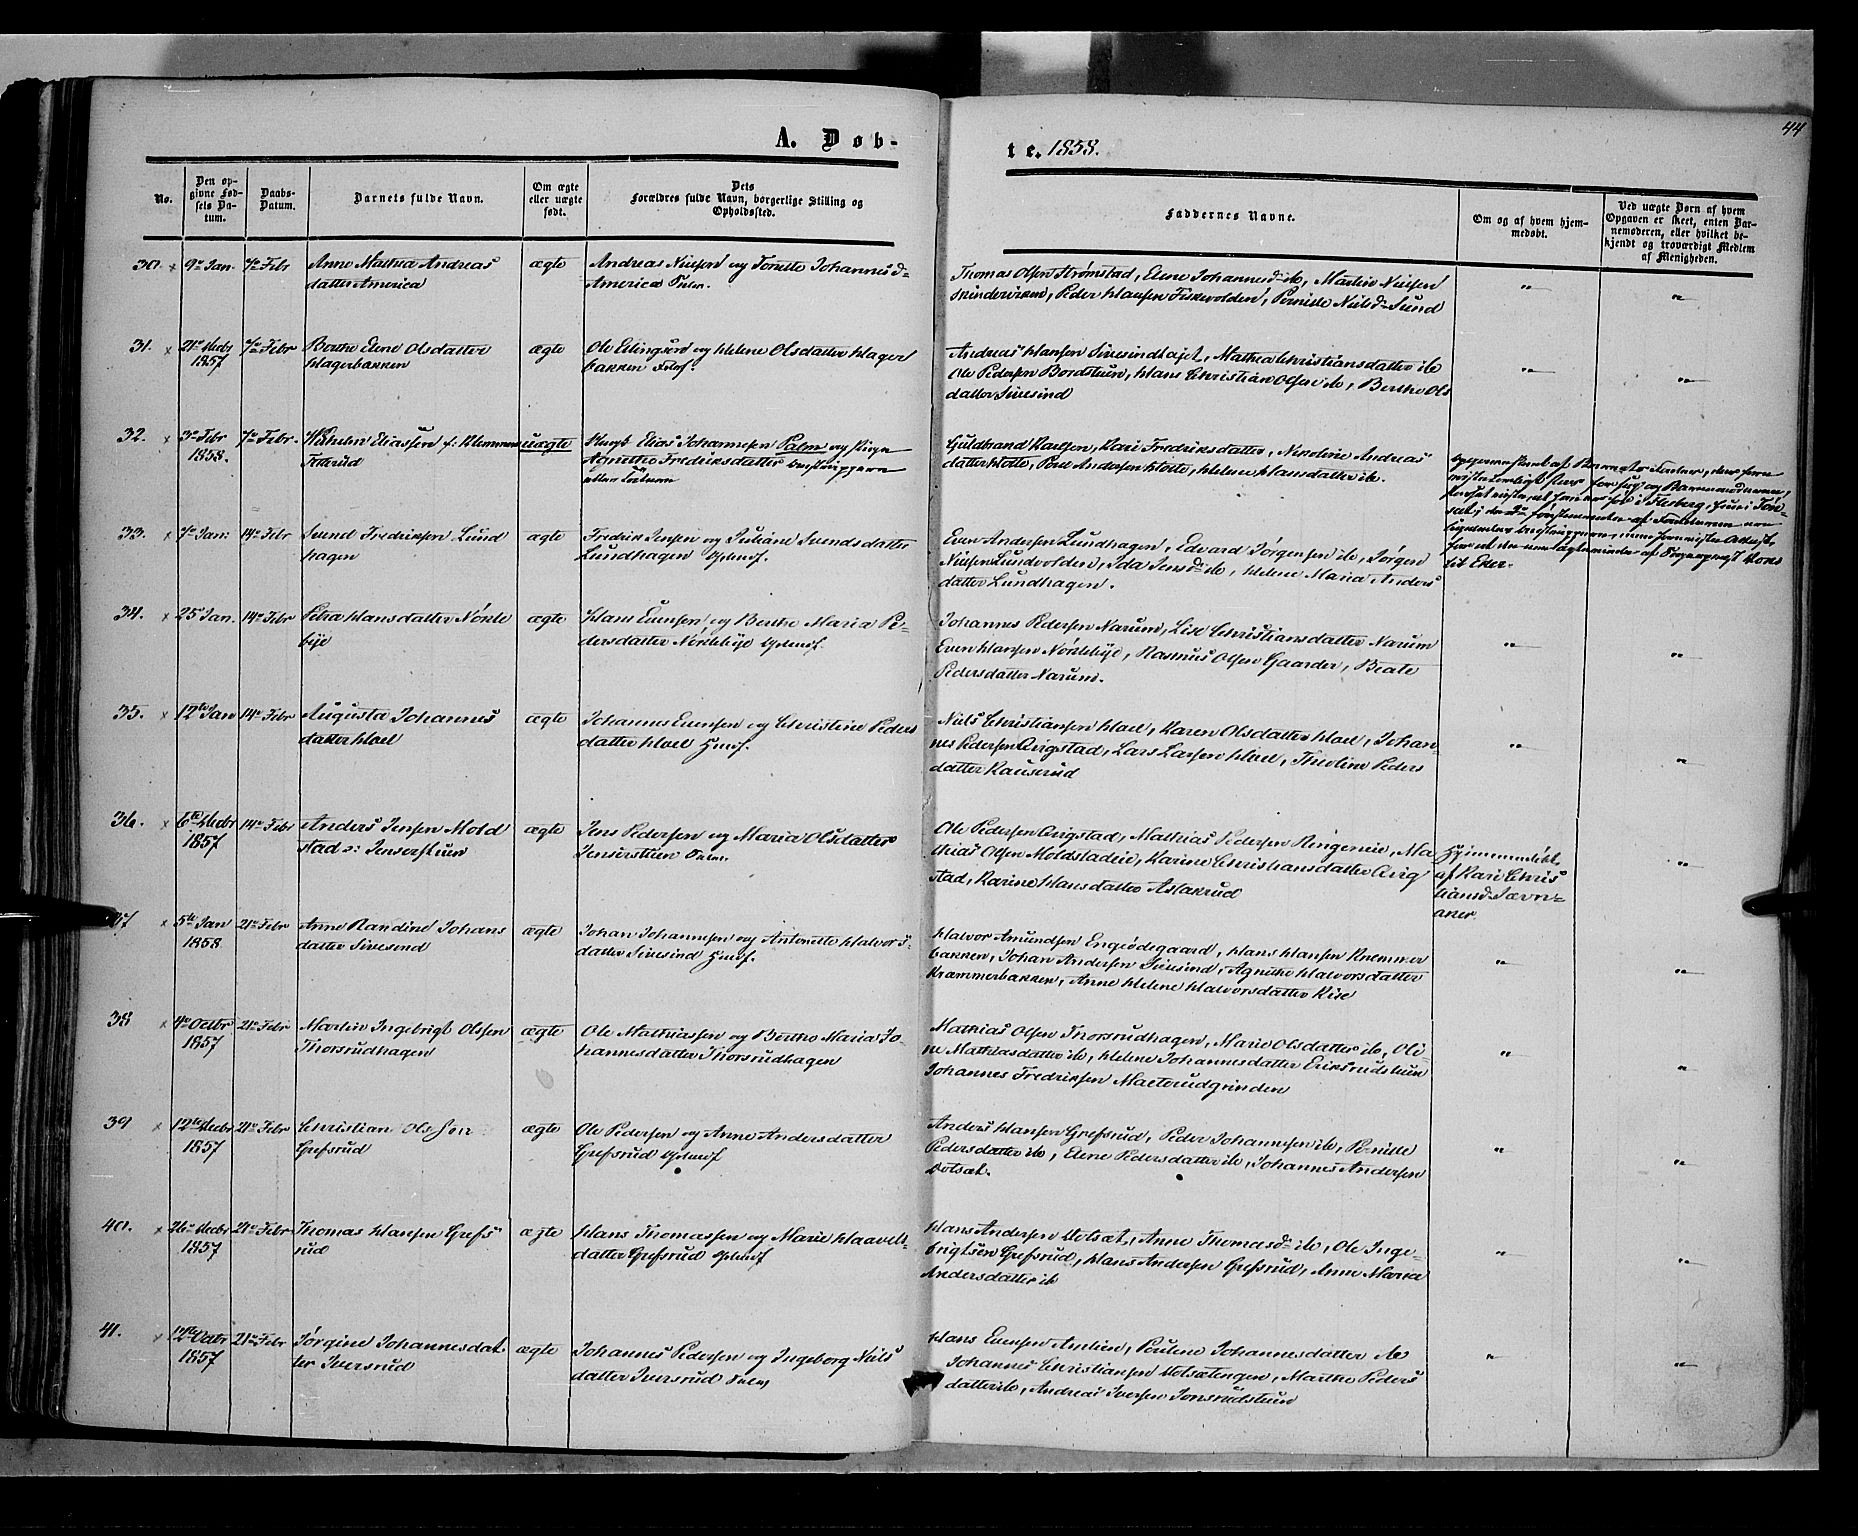 44
A. Døb-
te. 1858.
No.
Den op-
givne Fød-
sels Da-
tum.
Daabs-
Datum.
Barnets fulde Navn.
Om ægte
eller uægte
født.
Dets
Forældres fulde Navn, borgerlige Stilling og
Opholdssted.
Faddernes Navne.
Om og af hvem hjem-
medøbt.
Ved uægte Børn af hvem
Opgaven er skeet, enten Bar-
nemoderen, eller hvilket be-
kjendt og troværdigt Medlem
af Menigheden.
30. 9de Jan. 7de Febr Anne Mathea Andreas
datter America
ægte
Andreas Nielsen og Tonette Johannesd-
America
Thomas Olsen Strømstad, Elene Johannesd. ib, Martin Nielsen
Peder Hansen Fiskevolden, Pernille Nielsd. Lund
31. 21de Decbr 7de Febr
1857
Berthe Elene Olsdatter
Hagerbakken
ægte
Ole Ellingsen og Helene Olsdatter Hager
bakken
Andreas Hansen Sivesindhajet, Mathea Christiansdatter ib
Ole Pedersen Bordstuen, Hans Christian Olsen ib, Berthe Ols
datter Sivesind
32. 3de Febr 7de Febr.
1858.
Wilhelm Eliassen
uægte
Elias Johannesen Palm og Pigen
Agnethe Fredriksdatter
Guldbrand Karlsen, Kari Fredriksdatter, Nicoline Andreas
datter Hotte, Poul Andersen Hotte, Helene Hansdatter ib.
33. 7de Jan. 14de Febr Svend Fredriksen Lund
hagen
ægte
Fredrik Jensen og Juliane Svendsdatter
Lundhagen
Even Andersen Lundhagen, Edvard Jørgensen ib, Jørgen
Nielsen Lundvolden, Ida Jensd. ib, Helene Maria Anders
datter Lundhagen.
34. 25 Jan. 14de Febr Petra Hansdatter Nørste
bye
ægte
Hans Evensen og Berthe Maria Pe-
dersdatter Nørstebye
Johannes Pedersen Narum, Lise Christiansdatter Narum
Even Hansen Nørstebye, Rasmus Olsen Gaarder, Beate
Pedersdatter Narum.
35. 12te Jan 14de Febr Augusta Johannes
datter Hoel
ægte
Johannes Evensen og Christine Peders
datter Hoel
Niels Christiansen Hoel, Karen Olsdatter Hoel, Johan-
nes Pedersen Avgstad, Lars Larsen Hoel, Theoline Peders
datter Kauserud
36. 6te Decbr 14de Febr
1857
Anders Jensen Mold
stad
ægte
Jens Pedersen og Maria Olsdatter
Ole Pedersen Avgstad, Mathias Pedersen Ringeneie, Ma
thias Olsen Moldstadeie, Karine Christiansdatter Avg
stad, Karine Hansdatter Aslakrud
Hjemmedøbt
af Kari Chris
tiansd.
37 5te Jan 21de Febr
1858
Anne Randine Johans
datter Sivesind
ægte
Johan Johannesen og Antonette Halvors-
datter Sivesind
Halvor Amundsen Engeødegaard, Hans Hansen Kremmer
bakken, Johan Andersen Sivesind, Agnethe Halvorsdatter
Kræmmerbakken, Anne Helene Halvorsdatter Kise
38 4de Octbr 21de Febr
1857
Martin Ingebrigt Olssen
Thorsrudhagen
ægte
Ole Mathiassen og Berthe Maria Jo-
hannesdatter Thorsrudhagen
Mathias Olsen Thorsrudhagen, Marie Olsdatter ib, Oli-
ne Mathiasdatter ib, Helene Johannesdatter Eriksrudstuen
Johannes Fredriksen Maeterudgrinden
39 12te Decbr 21de Febr
1857
Christian Olssen
Grefsrud
ægte
Ole Pedersen og Anne Andersdatter
Grefsrud
Anders Hansen Grefsrud, Peder Johannesen ib, Pernille
Pedersdatter ib, Elene Pedersdatter ib, Johannes Andersen
Dotsæt.
40. 26de Decbr 21de Febr
1857
Thomas Hansen Grefs
rud
ægte
Hans Thomassen og Marie Haavels-
datter Grefsrud
Hans Andersen Dotsæt, Anne Thomasd. ib, Ole Inge-
brigtsen Grefsrud, Hans Andersen Grefsrud, Anne Maria
Andersdatter ib
41. 12te Octbr 21de Febr
1857
Jørgine Johannesdat
ter Iversrud
ægte
Johannes Pedersen og Ingeborg Niels
datter Iversrud
Hans Evensen Amlien, Paulene Johannesdatter ib
Johannes Christiansen Dotsætengen, Marthe Peders
datter ib, Andreas Iversen Jonsrudstuen